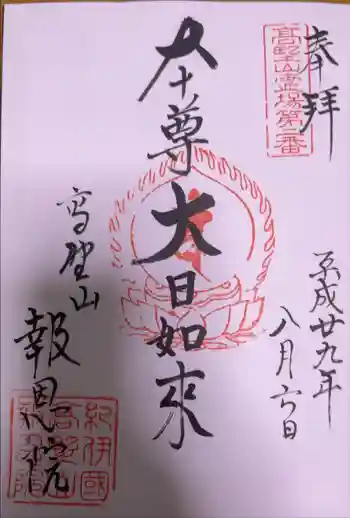 奉拝
高野山霊場第二番
平成廿九年
八月六日
本尊大日如來
高野山
報恩院
紀伊國
高野山
報恩院